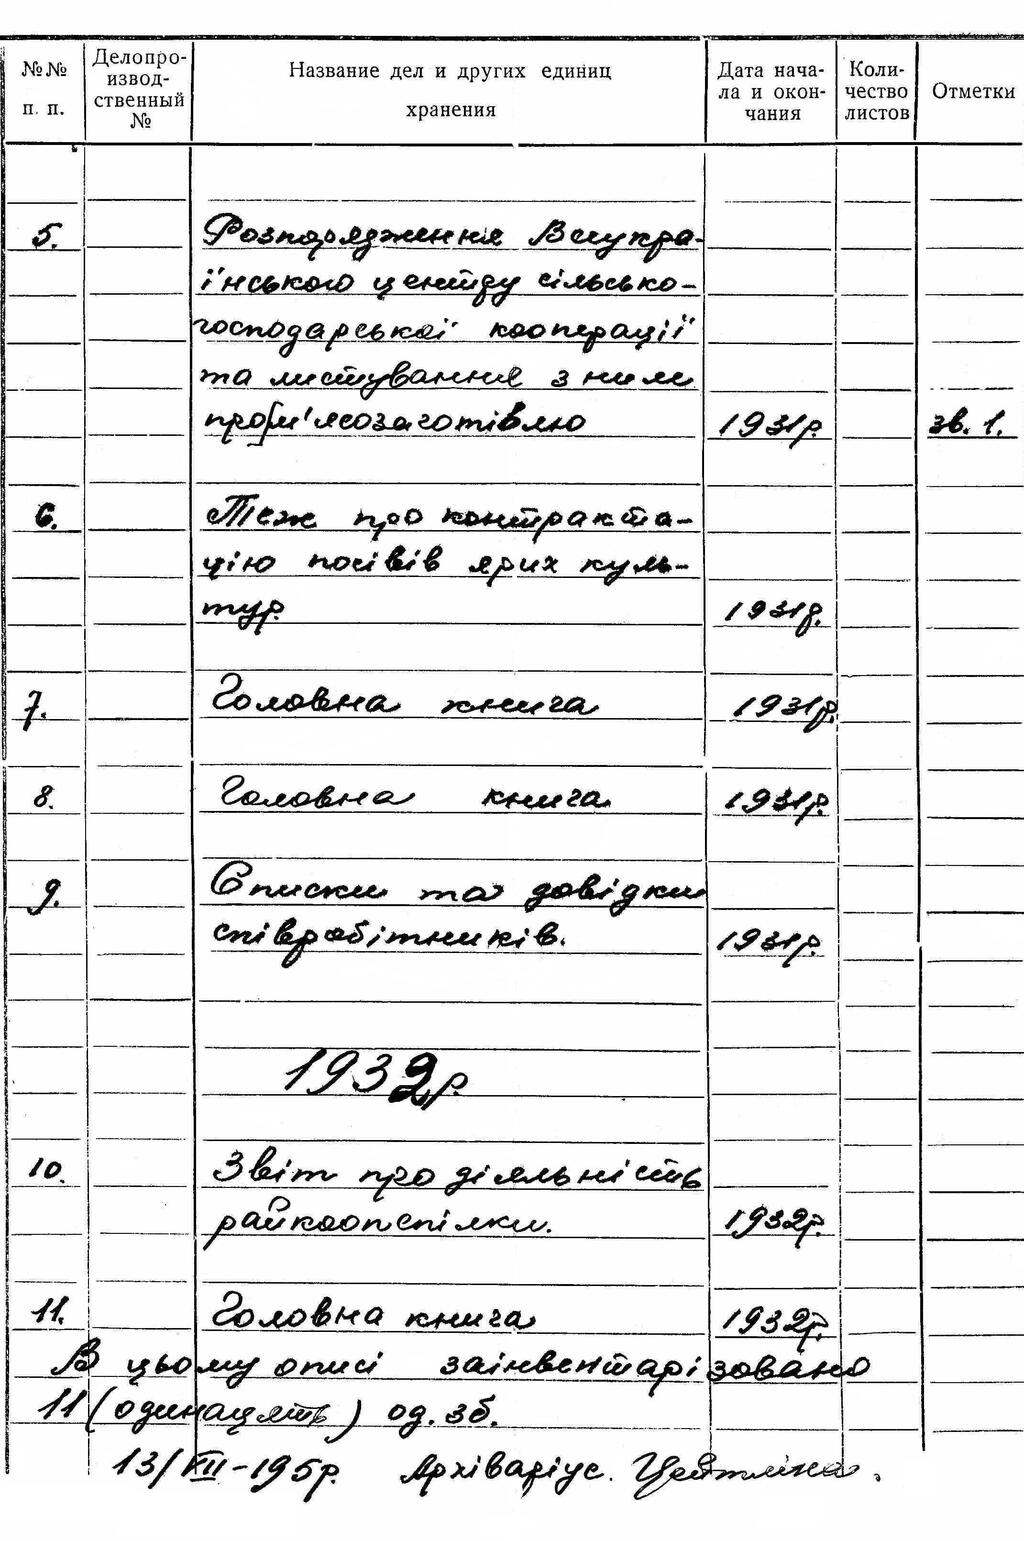 №№ п. п.
Делопроизводственный №
Название дел и других единиц хранения
Дата начала и окончания
Количество листов
Отметки
5. Розпорядження Всеукра-
їнського центру сільсько-
господарської кооперації
та листування з ним
про м'ясозаготівлю 1931р. зв. 1.
6. Теж про контракта-
цію посівів ярих куль-
тур. 1931р.
7. Головна книга 1931р.
8. Головна книга 1931р.
9. Списки та довідки
співробітників. 1931р.
1932р.
10. Звіт про діяльність
райкоопспілки. 1932р.
11. Головна книга 1932р.
В цьому описі заінвентарізовано
11 (одинацять) од. зб.
13/VIII-195р. Архіваріус. Цейтліна.